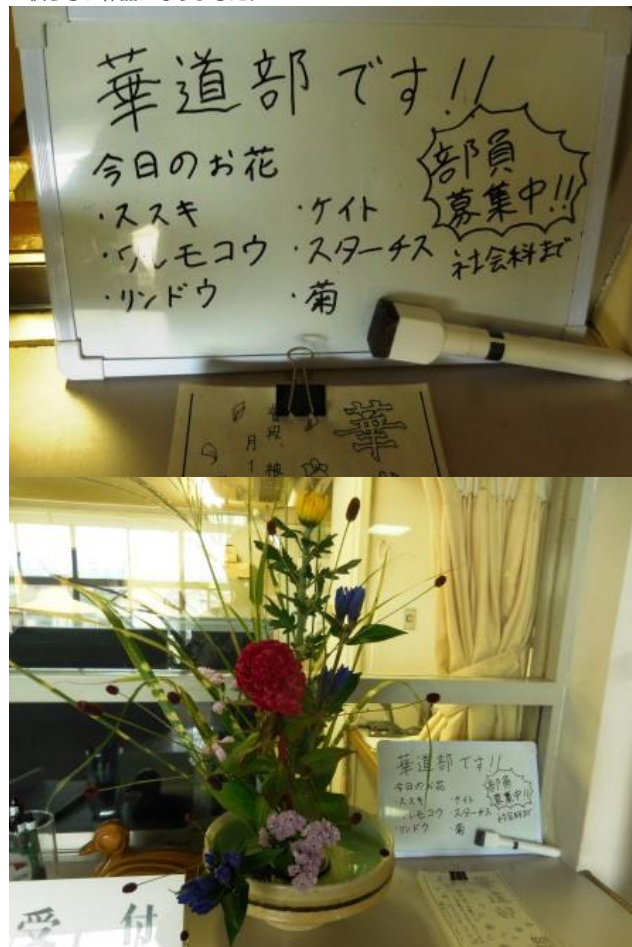 華道部です!!
今日のお花
・ススキ
・ワレモコウ
・リンドウ
・ケイト
・スターチス
・菊
部員
募集中!!
社会科まで
華
月1
華道部です!!
今日のお花
・ススキ
・ワレモコウ
・リンドウ
・ケイト
・スターチス
・菊
部員
募集中!!
社会科まで
受付